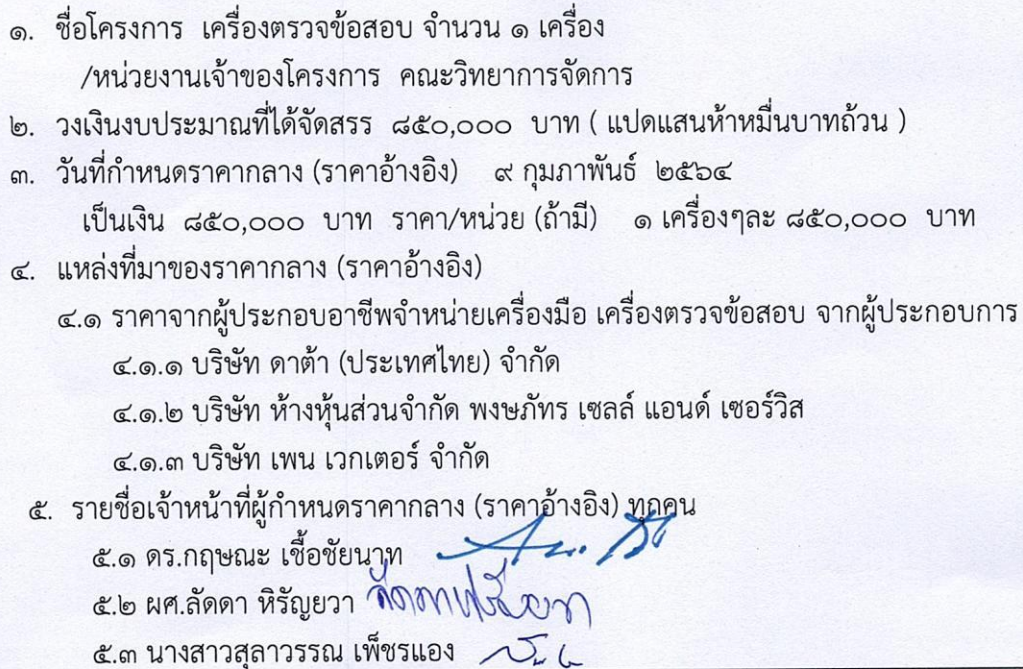 ๑. ชื่อโครงการ เครื่องตรวจข้อสอบ จำนวน ๑ เครื่อง
/หน่วยงานเจ้าของโครงการ คณะวิทยาการจัดการ
๒. วงเงินงบประมาณที่ได้จัดสรร ๘๕๐,๐๐๐ บาท ( แปดแสนห้าหมื่นบาทถ้วน )
๓. วันที่กำหนดราคากลาง (ราคาอ้างอิง) ๙ กุมภาพันธ์ ๒๕๖๔
เป็นเงิน ๘๕๐,๐๐๐ บาท ราคา/หน่วย (ถ้ามี) ๑ เครื่องๆละ ๘๕๐,๐๐๐ บาท
๔. แหล่งที่มาของราคากลาง (ราคาอ้างอิง)
๔.๑ ราคาจากผู้ประกอบอาชีพจำหน่ายเครื่องมือ เครื่องตรวจข้อสอบ จากผู้ประกอบการ
๔.๑.๑ บริษัท ดาต้า (ประเทศไทย) จำกัด
๔.๑.๒ บริษัท ห้างหุ้นส่วนจำกัด พงษภัทร เซลล์ แอนด์ เซอร์วิส
๔.๑.๓ บริษัท เพน เวกเตอร์ จำกัด
๕. รายชื่อเจ้าหน้าที่ผู้กำหนดราคากลาง (ราคาอ้างอิง) ทุกคน
๕.๑ ดร.กฤษณะ เชื้อชัยนาท
๕.๒ ผศ.ลัดดา หิรัญยวา ลัดดา หิรัญยวา
๕.๓ นางสาวสุลาวรรณ เพ็ชรแอง